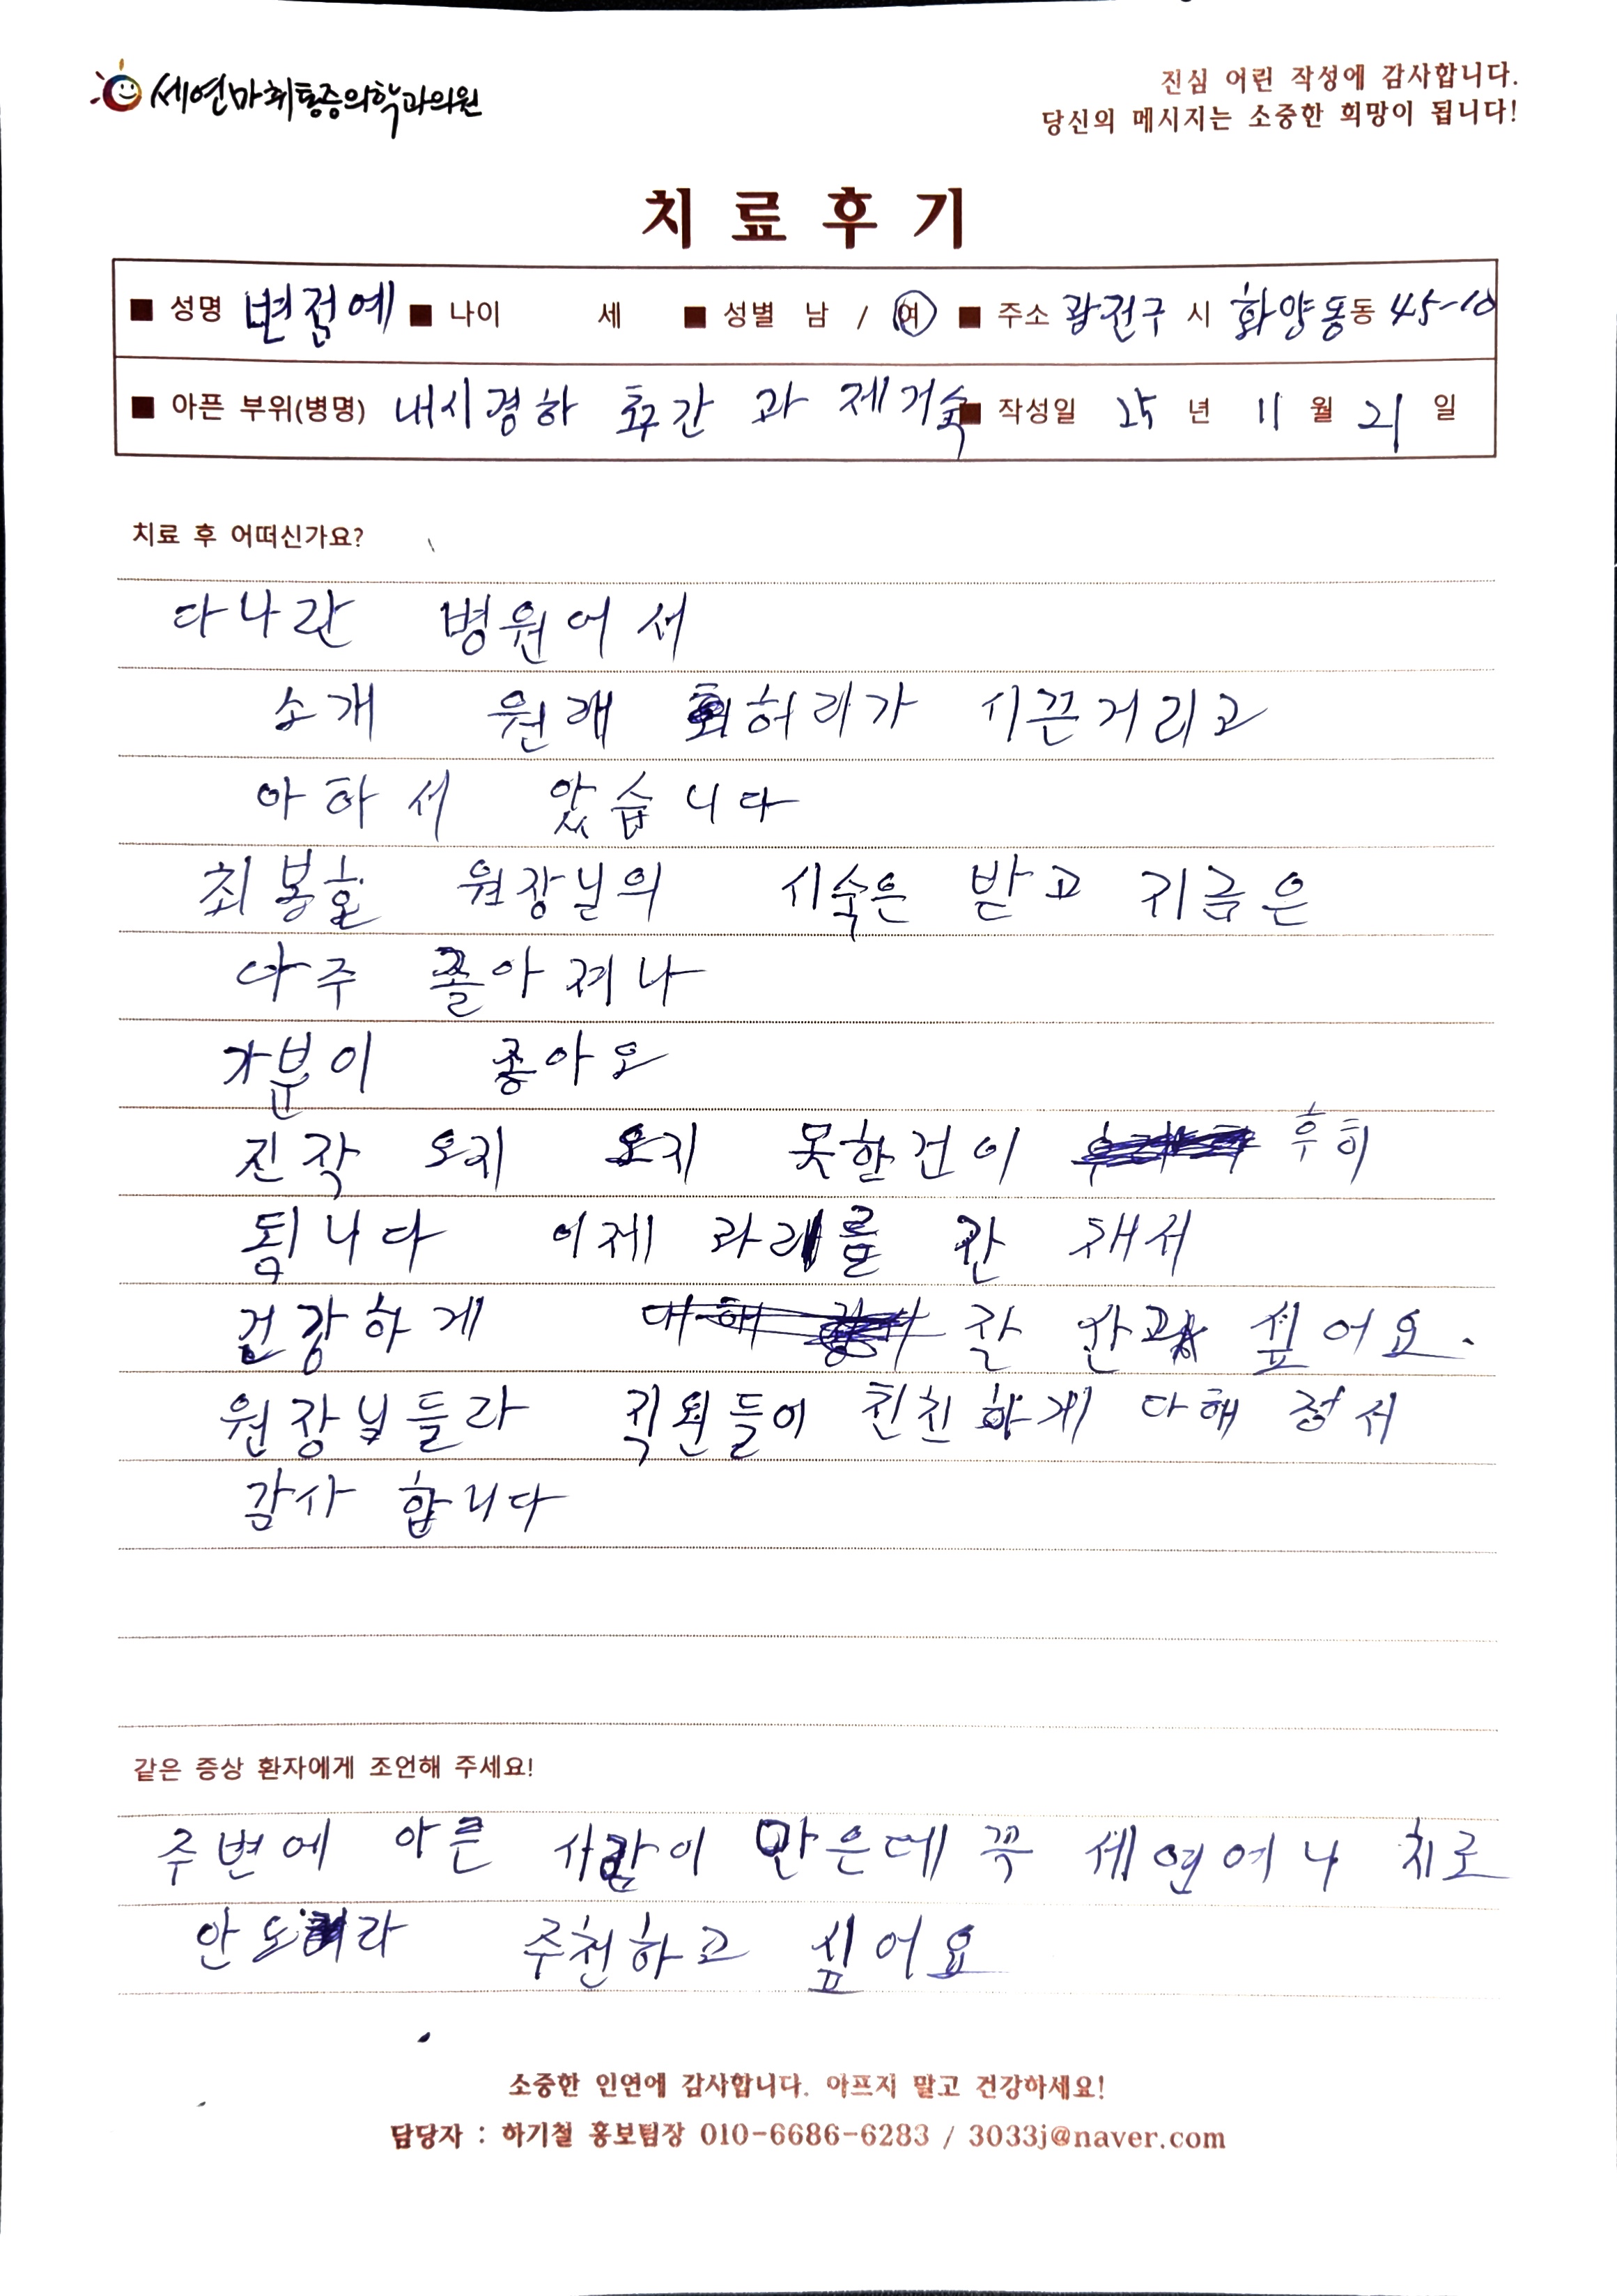 세연마취통증의학과의원
진심 어린 작성에 감사합니다.
당신의 메시지는 소중한 희망이 됩니다!
치료후기
■ 성명 변점예 ■ 나이 세 ■ 성별 남 / 여 ■ 주소 광진구 시 화양동동 45-10
■ 아픈 부위(병명) 내시경하 추간 과 제거술 ■ 작성일 25 년 11 월 21 일
치료 후 어떠신가요?
다나간 병원어서
소개 원래 허리가 시끈거리고
아하서 았습니다
최봉호 원장닐의 시숙은 받고 지금은
아주 졸아저나
가분이 좋아오
진작 오지 오지 못한건이 후히
됨니다 이제 과리를 잔 해서
건강하게 잘 싶어요.
원장님들라 직원들이 친친하게 다해 정서
감사 합니다
같은 증상 환자에게 조언해 주세요!
주변에 아른 사람이 만은데 꼭 세연어나 치로
주천하고 싶어요
소중한 인연에 감사합니다. 아프지 말고 건강하세요!
담당자 : 하기철 홍보팀장 010-6686-6283 / 3033j@naver.com